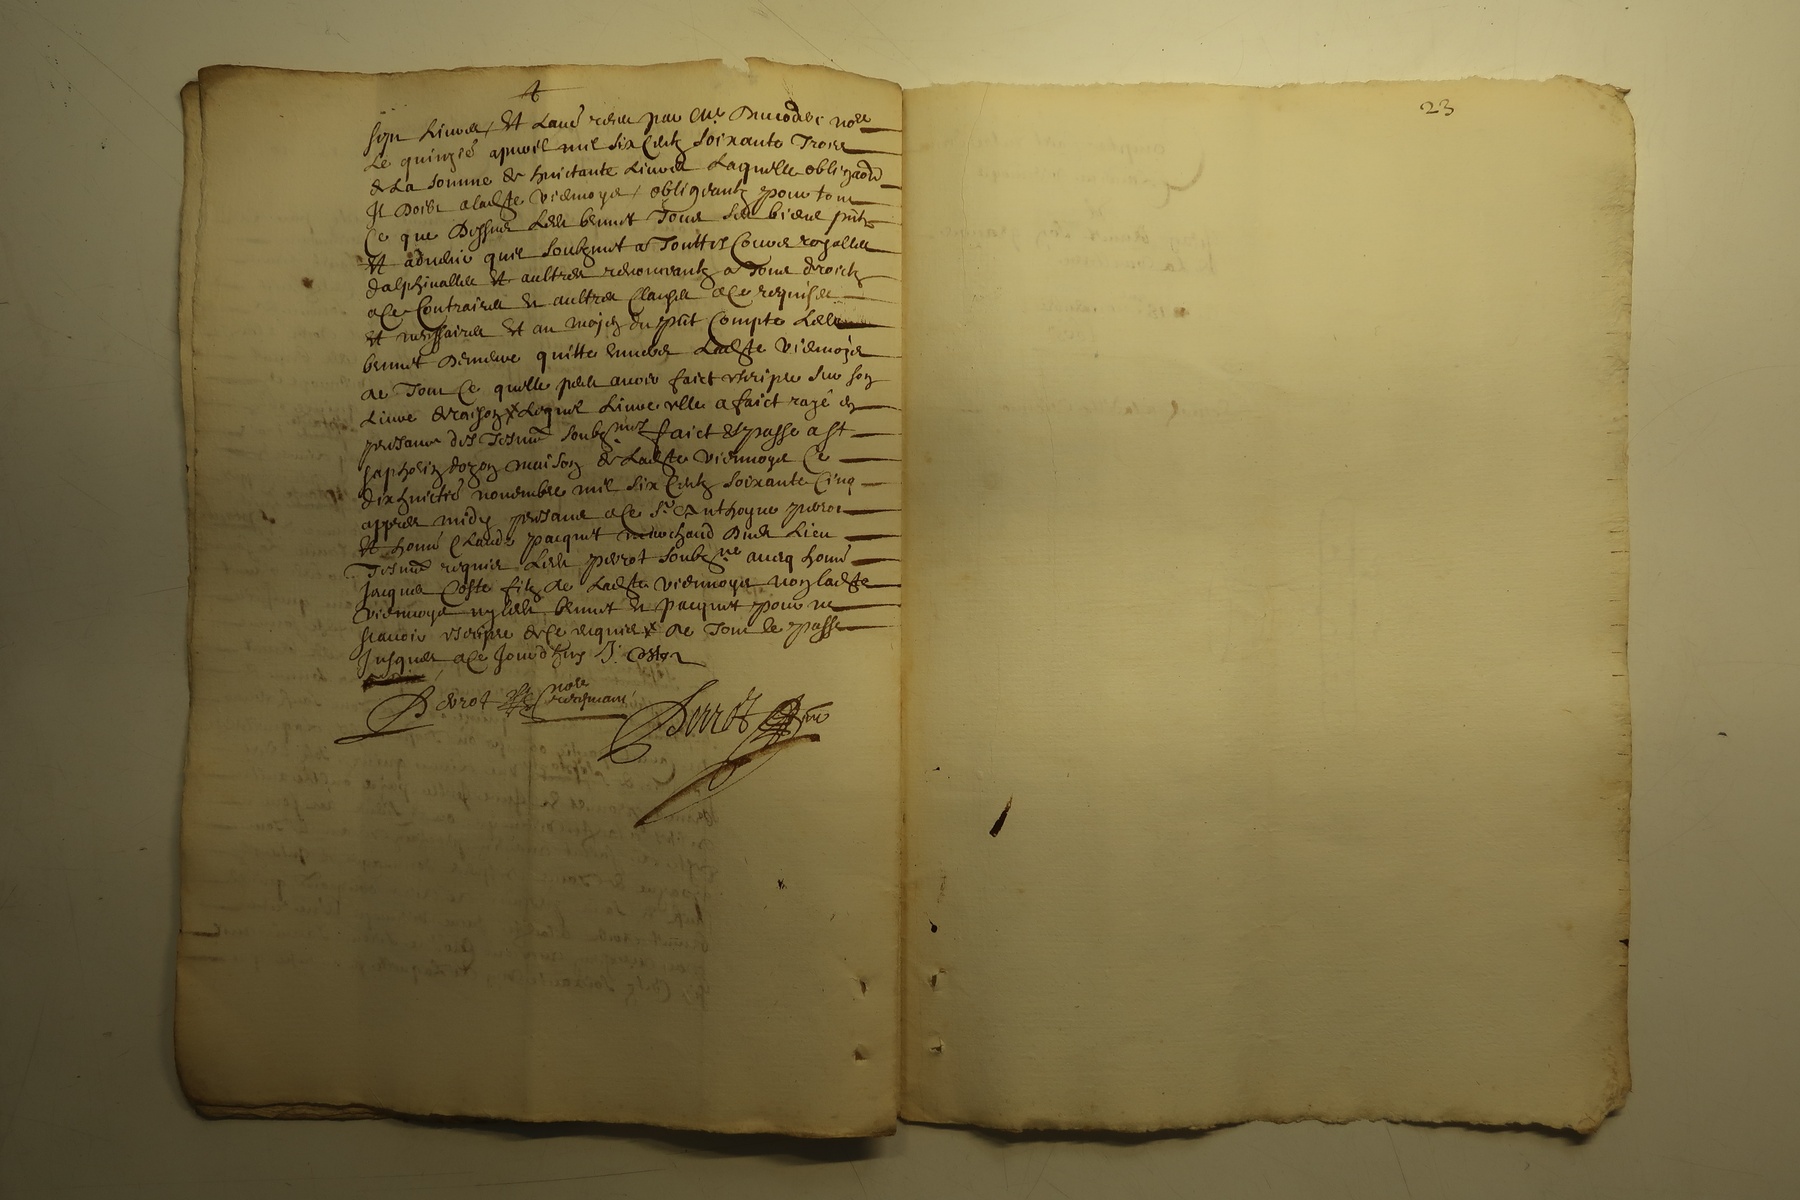 4
sept Livres, Et Lautre receu par Me no.re
Le quinzie apvril mil six Centz soixante Trois
de La somme de huictante Livres Laquelle obligaon
Il Doibt a ladte viennoyse, obligeantz pour tout
Ce que Dessus Ledt benoit Tous ses biens pntz
Et advenir quil soubzmet a Touttes Cours royalles
dalphinalles Et aultres renonceantz a Tous droictz
a Ce Contraires Et aultres Clauses a Ce requises
Et nessaires Et au moyen du pnt Compte Ledt
benoit Demeure quitte envers Ladte viennoyse
de Tout Ce quelle peult avoir faict escripre sur son
Livre de raison x Lequel Livre elle a faict rayé en
presance des Tesmoins soubznes faict Et passe a St
saphorin dozon maison de Ladte viennoyse Ce
dix huictie novembre mil six Centz soixante Cinq
appres midy presans a Ce Sr Anthoyne perrot
Et honn Claude pacquet marchand Dudt Lieu
Tesmoins requis Ledt perrot soubzne avecq honn
Jacques Coste filz de Ladte viennoyse non ladte
viennoyse ny ledt benoit Et pacquet pour ne
scavoir escripre de Ce requis x de Tout le passe
Jusques a Ce Jourdhuy J. Coste
Perrot no.re
Perrot
23